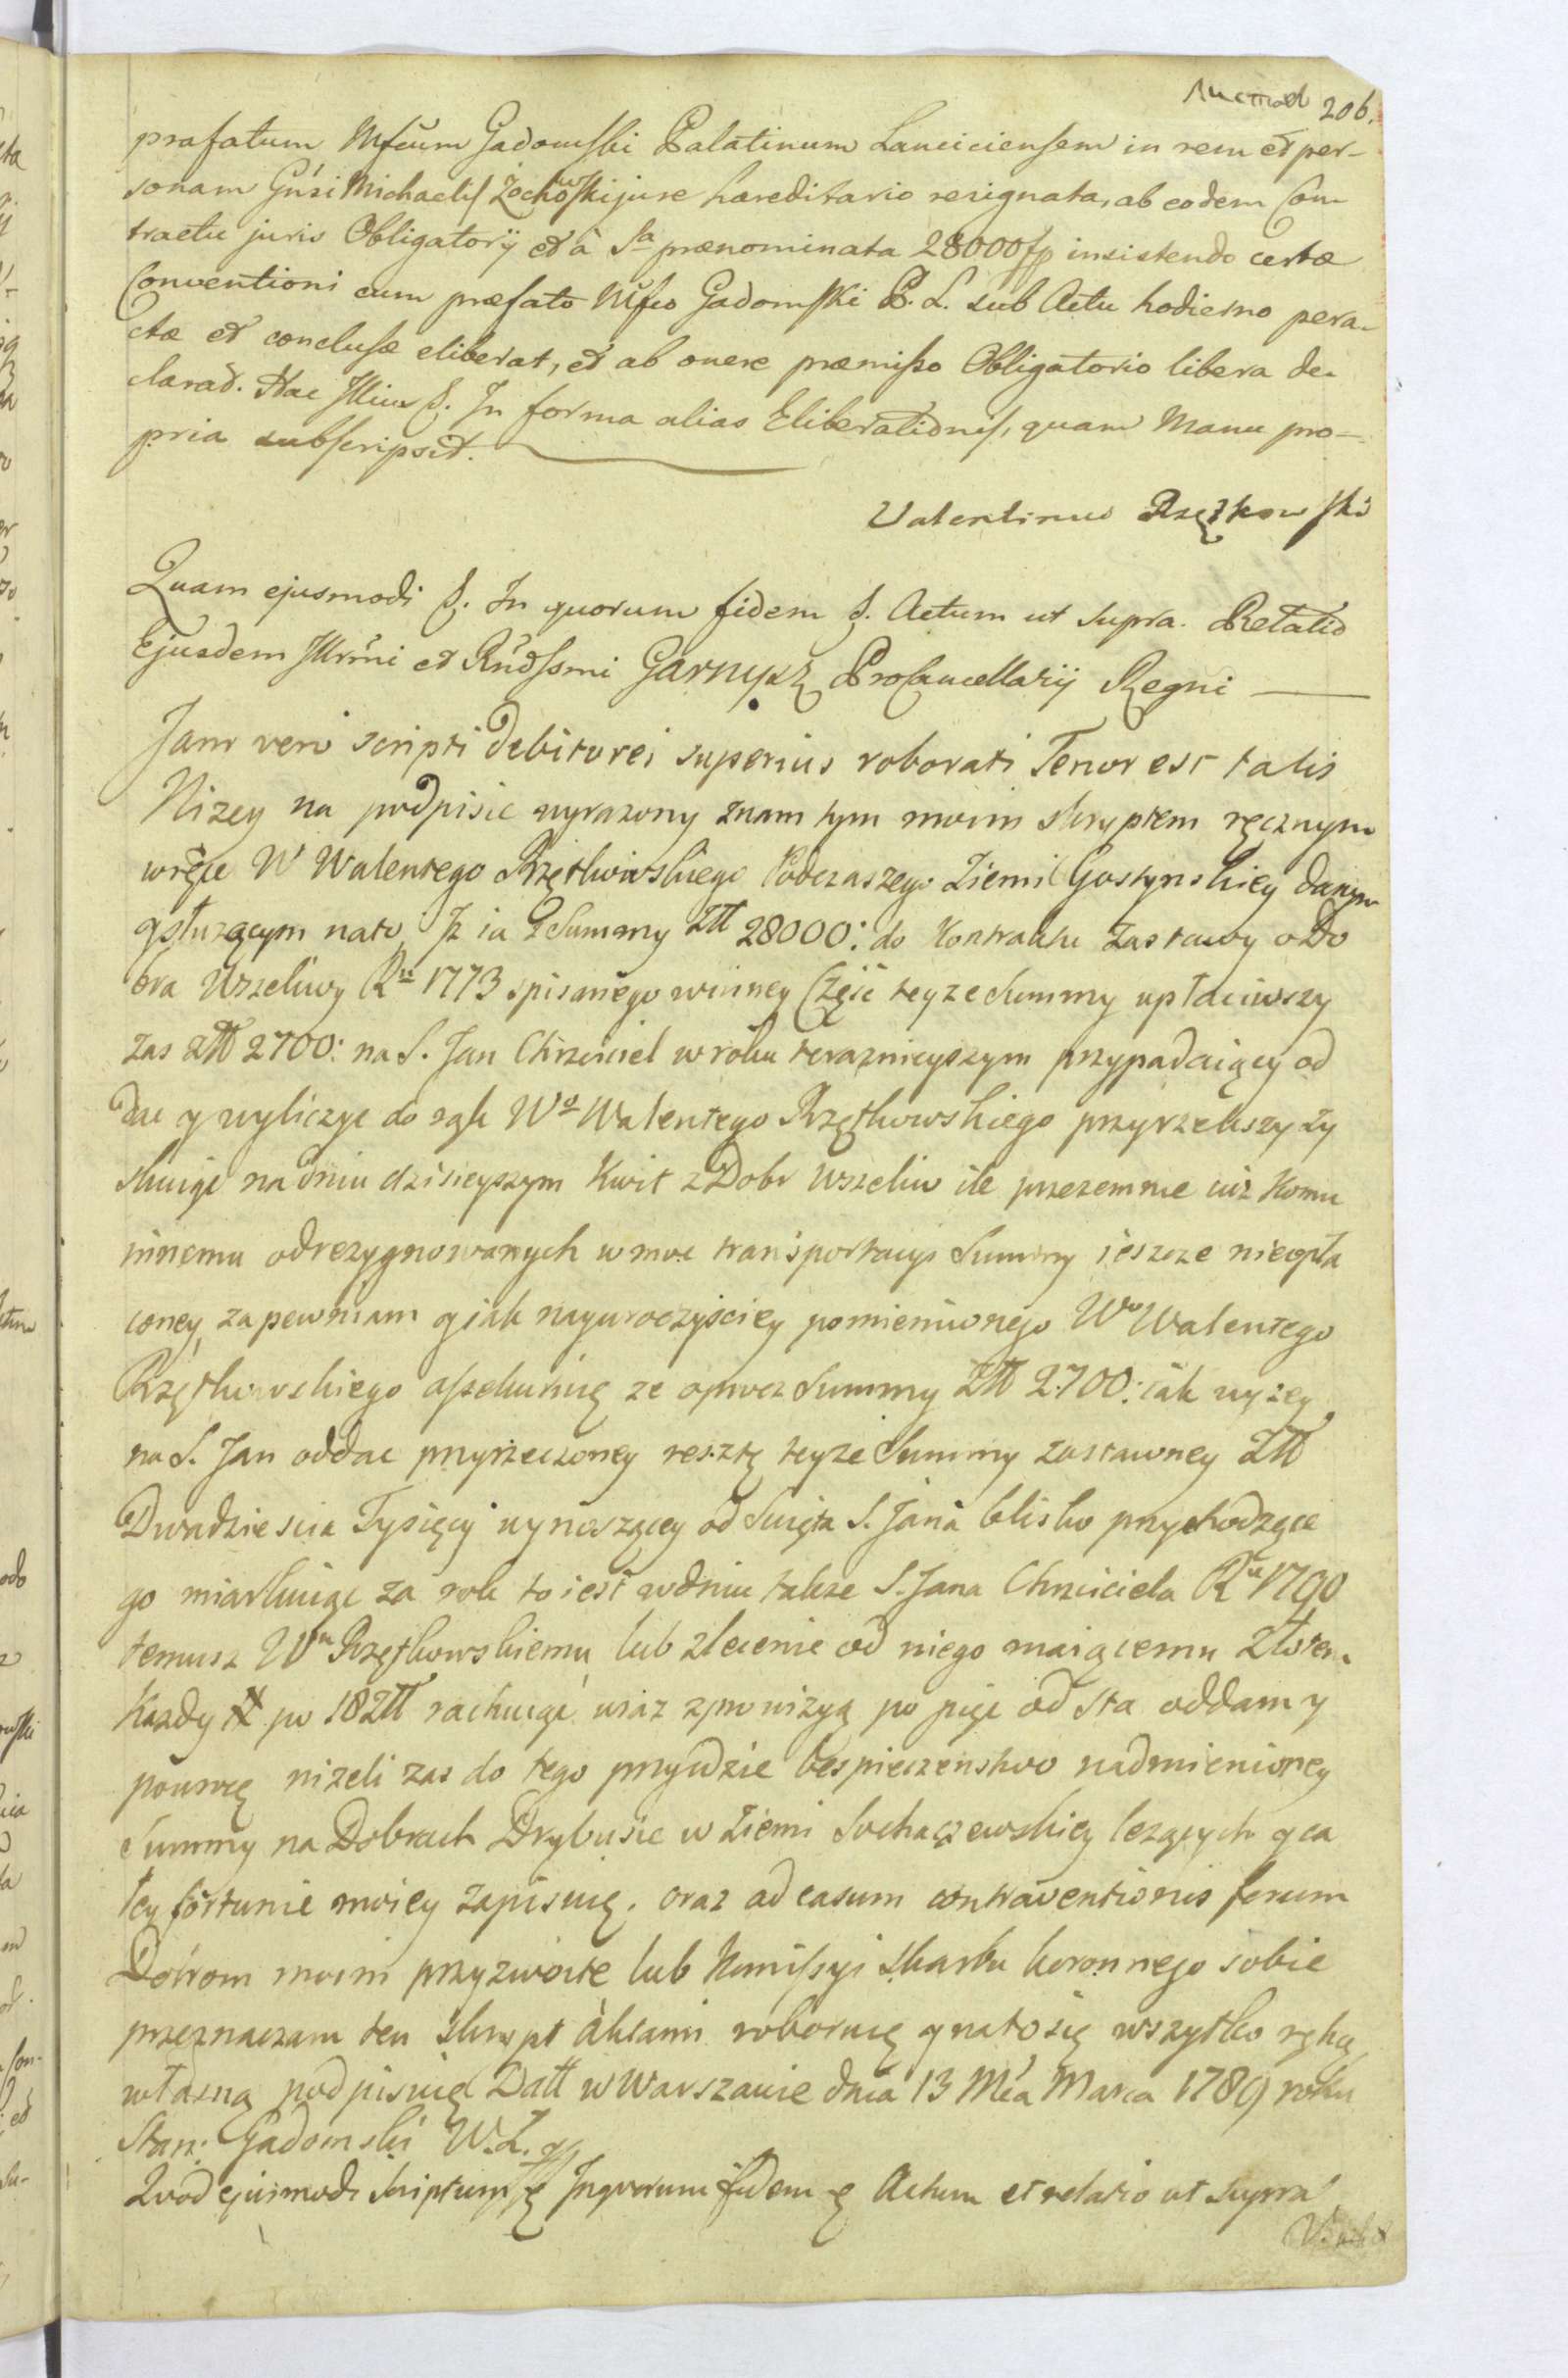 206.
præfatum Mfcum Gadomski Palatinum Lanciciensem in rem et per-
sonam Gnsi Michaelis Zochowski jure hæreditario resignata, ab eodem Con
tractu juris Obligatorij et à Sa prænominata 28000 fp insistendo certæ
Conventioni cum præfato Mfco Gadomski P. L. sub Actu hodierno pera-
ctæ et conclusæ eliberat, et ab onere præmisso Obligatorio libera de-
clarat. Hac In forma alias Eliberationis, quam Manu pro-
pria subscripsit.
Valentinus Rzętkowski
Quam ejusmodi &. In quorum fidem &. Actum ut supra. Relatio
Ejusdem Illrmi et Rndssmi Garnysz ProCancellarij Regni
Jam vero scripti debitorei superius roborati Tenor est talis
Nizey na podpisie wyrazony znam tym moim skryptem ręcznym
wręce W Walentego Rzętkowskiego Podczaszego Ziemi Gostynskiey danym
y słuzącym na to, Jz ia z Summy Złł 28000: do Kontraktu Zastawy o Do
bra Wszeliwy Ru 1773 spisanego winney Część teyze Summy upłaciwszy
zas złł 2700: na S. Jan Chrzciciel w roku teraznieyszym przypadaiący od
dac y wyliczyc do rąk Wo Walentego Rzętkowskiego przyrzekszy Zy
skuiąc na dniu dzisieyszym Kwit z Dobr Wszeliw ile przezemnie iuz Komu
innemu odrezygnowanych w moc transportacyi Summy ieszcze nieopła
coney, zapewniam y iak nayuroczyściey pomienionego Wo Walentego
Rzętkowskiego assekuruię ze oprocz Summy Złł 2700: iak wyzey
na S. Jan oddac przyrzeczoney resztę teyze Summy zastawney Złł
Dwadziescia Tysięcy wynoszącey od Swięta S. Jana blisko przychodzące
go miarkuiąc za rok to iest w dniu takze S. Jana Chrzciciela Ru 1790
temusz Wu Rzętkowskiemu lub zlecenie od niego maiącemu Złotem
Kazdy # po 18 Złł rachuiąc wraz z prowizyą po pięc od Sta oddam y
powrocę nizeli zas do tego przyidzie bespieczenstwo nadmienioney
Summy na Dobrach Drybusie w Ziemi Sochaczewskiey lezących y ca
łey fortunie moiey zapisuię. oraz ad casum contraventionis forum
Dobrom moim przyzwoite lub Komissyi Skarbu koronnego sobie
przeznaczam ten skrypt aktami roboruię y na to się wszytko ręką
własną podpisuię Datt w Warszawie dnia 13 Mca Marca 1789 roku
Stan: Gadomski W. Ł.
Quod ejusmodi Scriptum & In quorum fidem & Actum et relatio ut supra